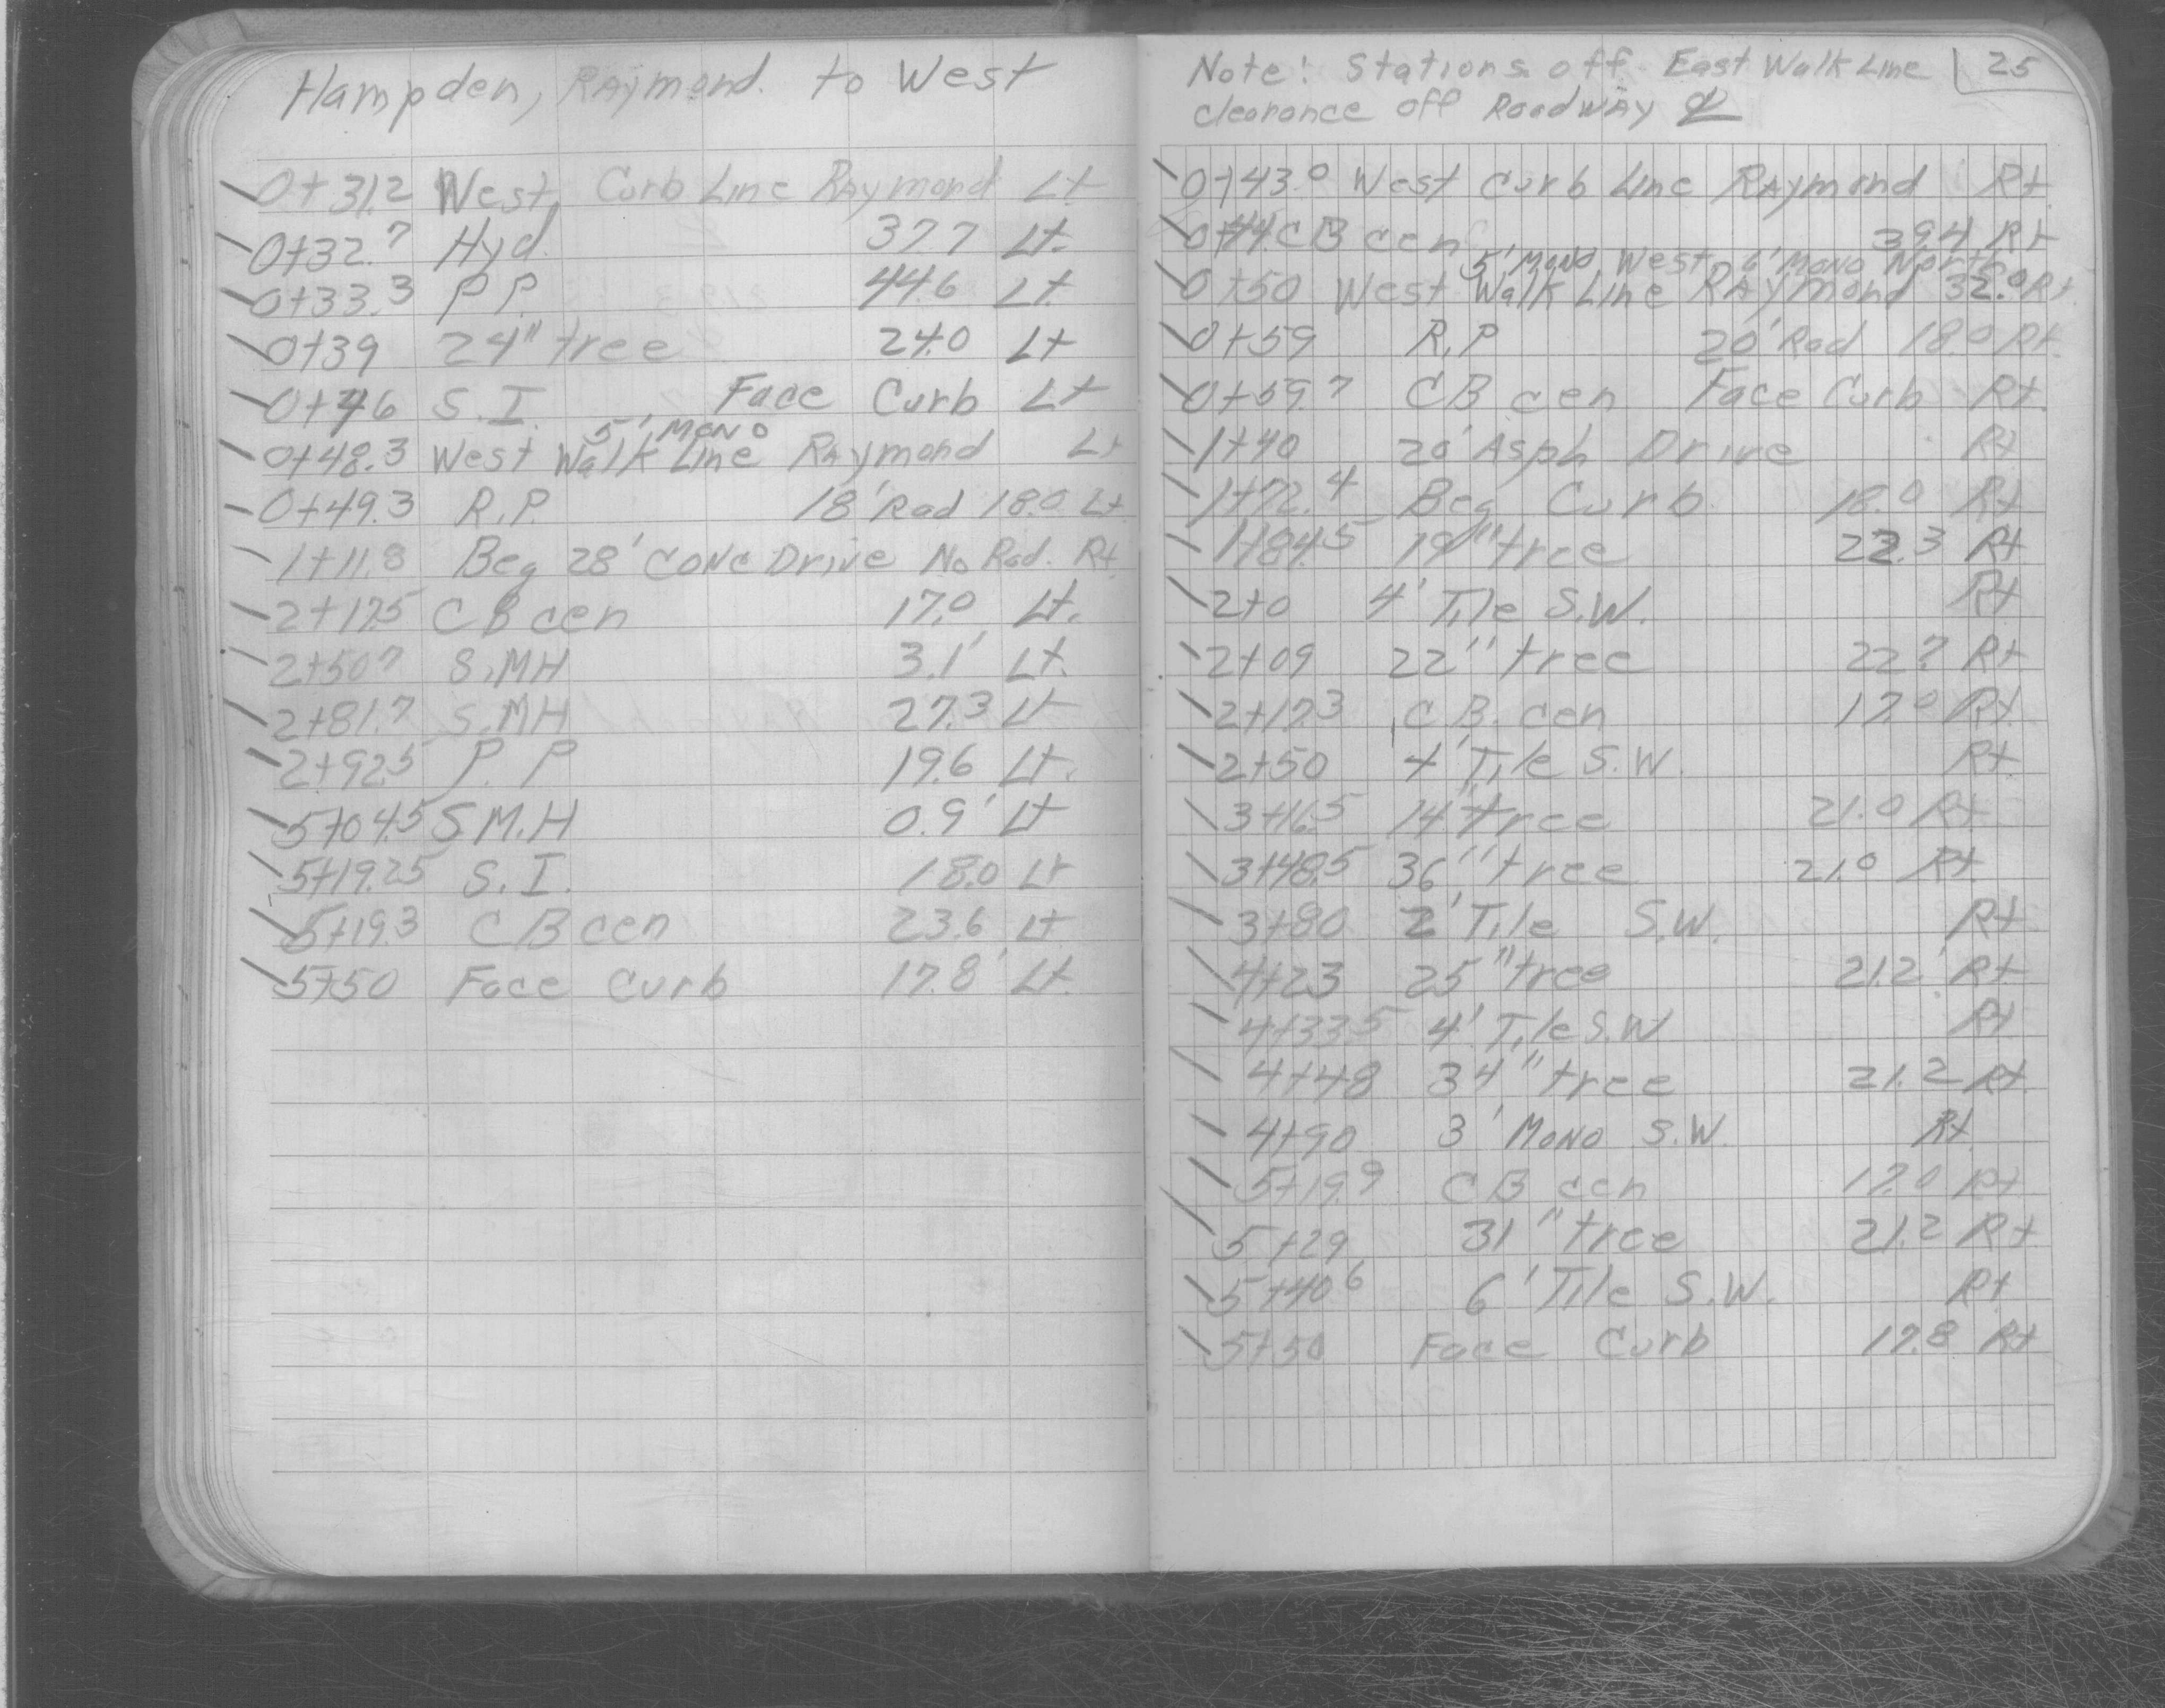 Hampden, Raymond. to West
0+31.2 West Curb Line Raymond Lt
0+32.7 Hyd. 37.7 Lt.
0+33.3 P.P. 44.6 Lt.
0+39 24" tree 24.0 Lt
0+46 S.I. Face Curb Lt
5' Mono
0+48.3 West Walk Line Raymond Lt
0+49.3 R.P. 18' Rad 18.0 Lt.
1+11.8 Beg 28' Conc Drive No Rad. Rt
2+17.5 CB cen 17.0 Lt.
2+50.7 S.MH 3.1' Lt.
2+81.7 S.MH 27.3 Lt
2+92.5 P.P 19.6 Lt.
5+04.5 S M.H 0.9' Lt
5+19.25 S.I. 18.0 Lt
5+19.3 CB cen 23.6 Lt
5+50 Face Curb 17.8' Lt.
Note! Stations off East Walk Line 25
clearance off Roadway ℄
0+43.0 West Curb Line Raymond Rt
0+44 CB cen 39.4 Rt
5' Mono West 6' Mono North
0+50 West Walk Line Raymond 32.0 Rt
0+59 R.P 20' Rad 18.0 Rt.
0+59.7 CB cen Face Curb Rt.
1+40 20' Asph Drive Rt
1+72.4 Beg Curb 18.0 Rt
1+84.5 19" tree 22.3 Rt
2+0 4' Tile S.W. Rt
2+09 22" tree 22.7 Rt
2+17.3 CB. cen 17.0 Rt.
2+50 4' Tile S.W. Rt.
3+16.5 14" tree 21.0 Rt
3+48.5 36" tree 21.0 Rt
3+80 2' Tile S.W. Rt
4+23 25" tree 21.2' Rt
4+33.5 4' Tile S.W Rt
4+48 34" tree 21.2 Rt
4+90 3' Mono S.W. Rt
5+19.9 CB cen 17.0 Rt
5+29 31" tree 21.2 Rt
5+40.6 6' Tile S.W. Rt
5+50 Face Curb 17.8 Rt